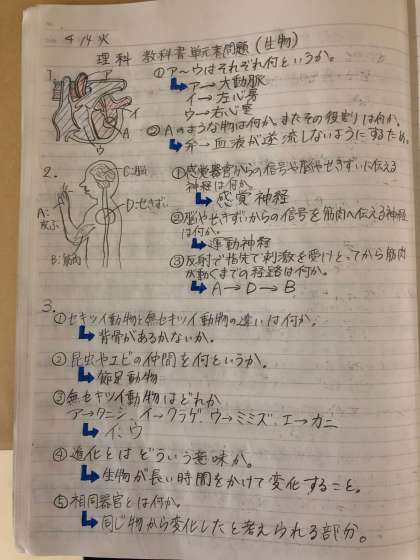 4/14 火
理科 教科書単元末問題(生物)
1.
ア
イ
A
ウ
①ア〜ウはそれぞれ何というか。
ア→大動脈
イ→左心房
ウ→右心室
②Aのような物は何か。またその役割は何か。
弁→血液が逆流しないようにするため。
2.
C:脳
A:皮ふ
D:せきずい
B:筋肉
①感覚器官からの信号や脳やせきずいに伝える
神経は何か。
感覚神経
②脳やせきずいからの信号を筋肉へ伝える神経
は何か。
運動神経
③反射で指先で刺激を受けとってから筋肉
が動くまでの経路は何か。
A→D→B
3.
①セキツイ動物と無セキツイ動物の違いは何か。
背骨があるかないか。
②昆虫やエビの仲間を何というか。
節足動物
③無セキツイ動物はどれか
ア→ワニ、イ→クラゲ、ウ→ミミズ、エ→カニ
イ、ウ
④進化とはどういう意味か。
生物が長い時間をかけて変化すること。
⑤相同器官とは何か。
同じ物から変化したと考えられる部分。